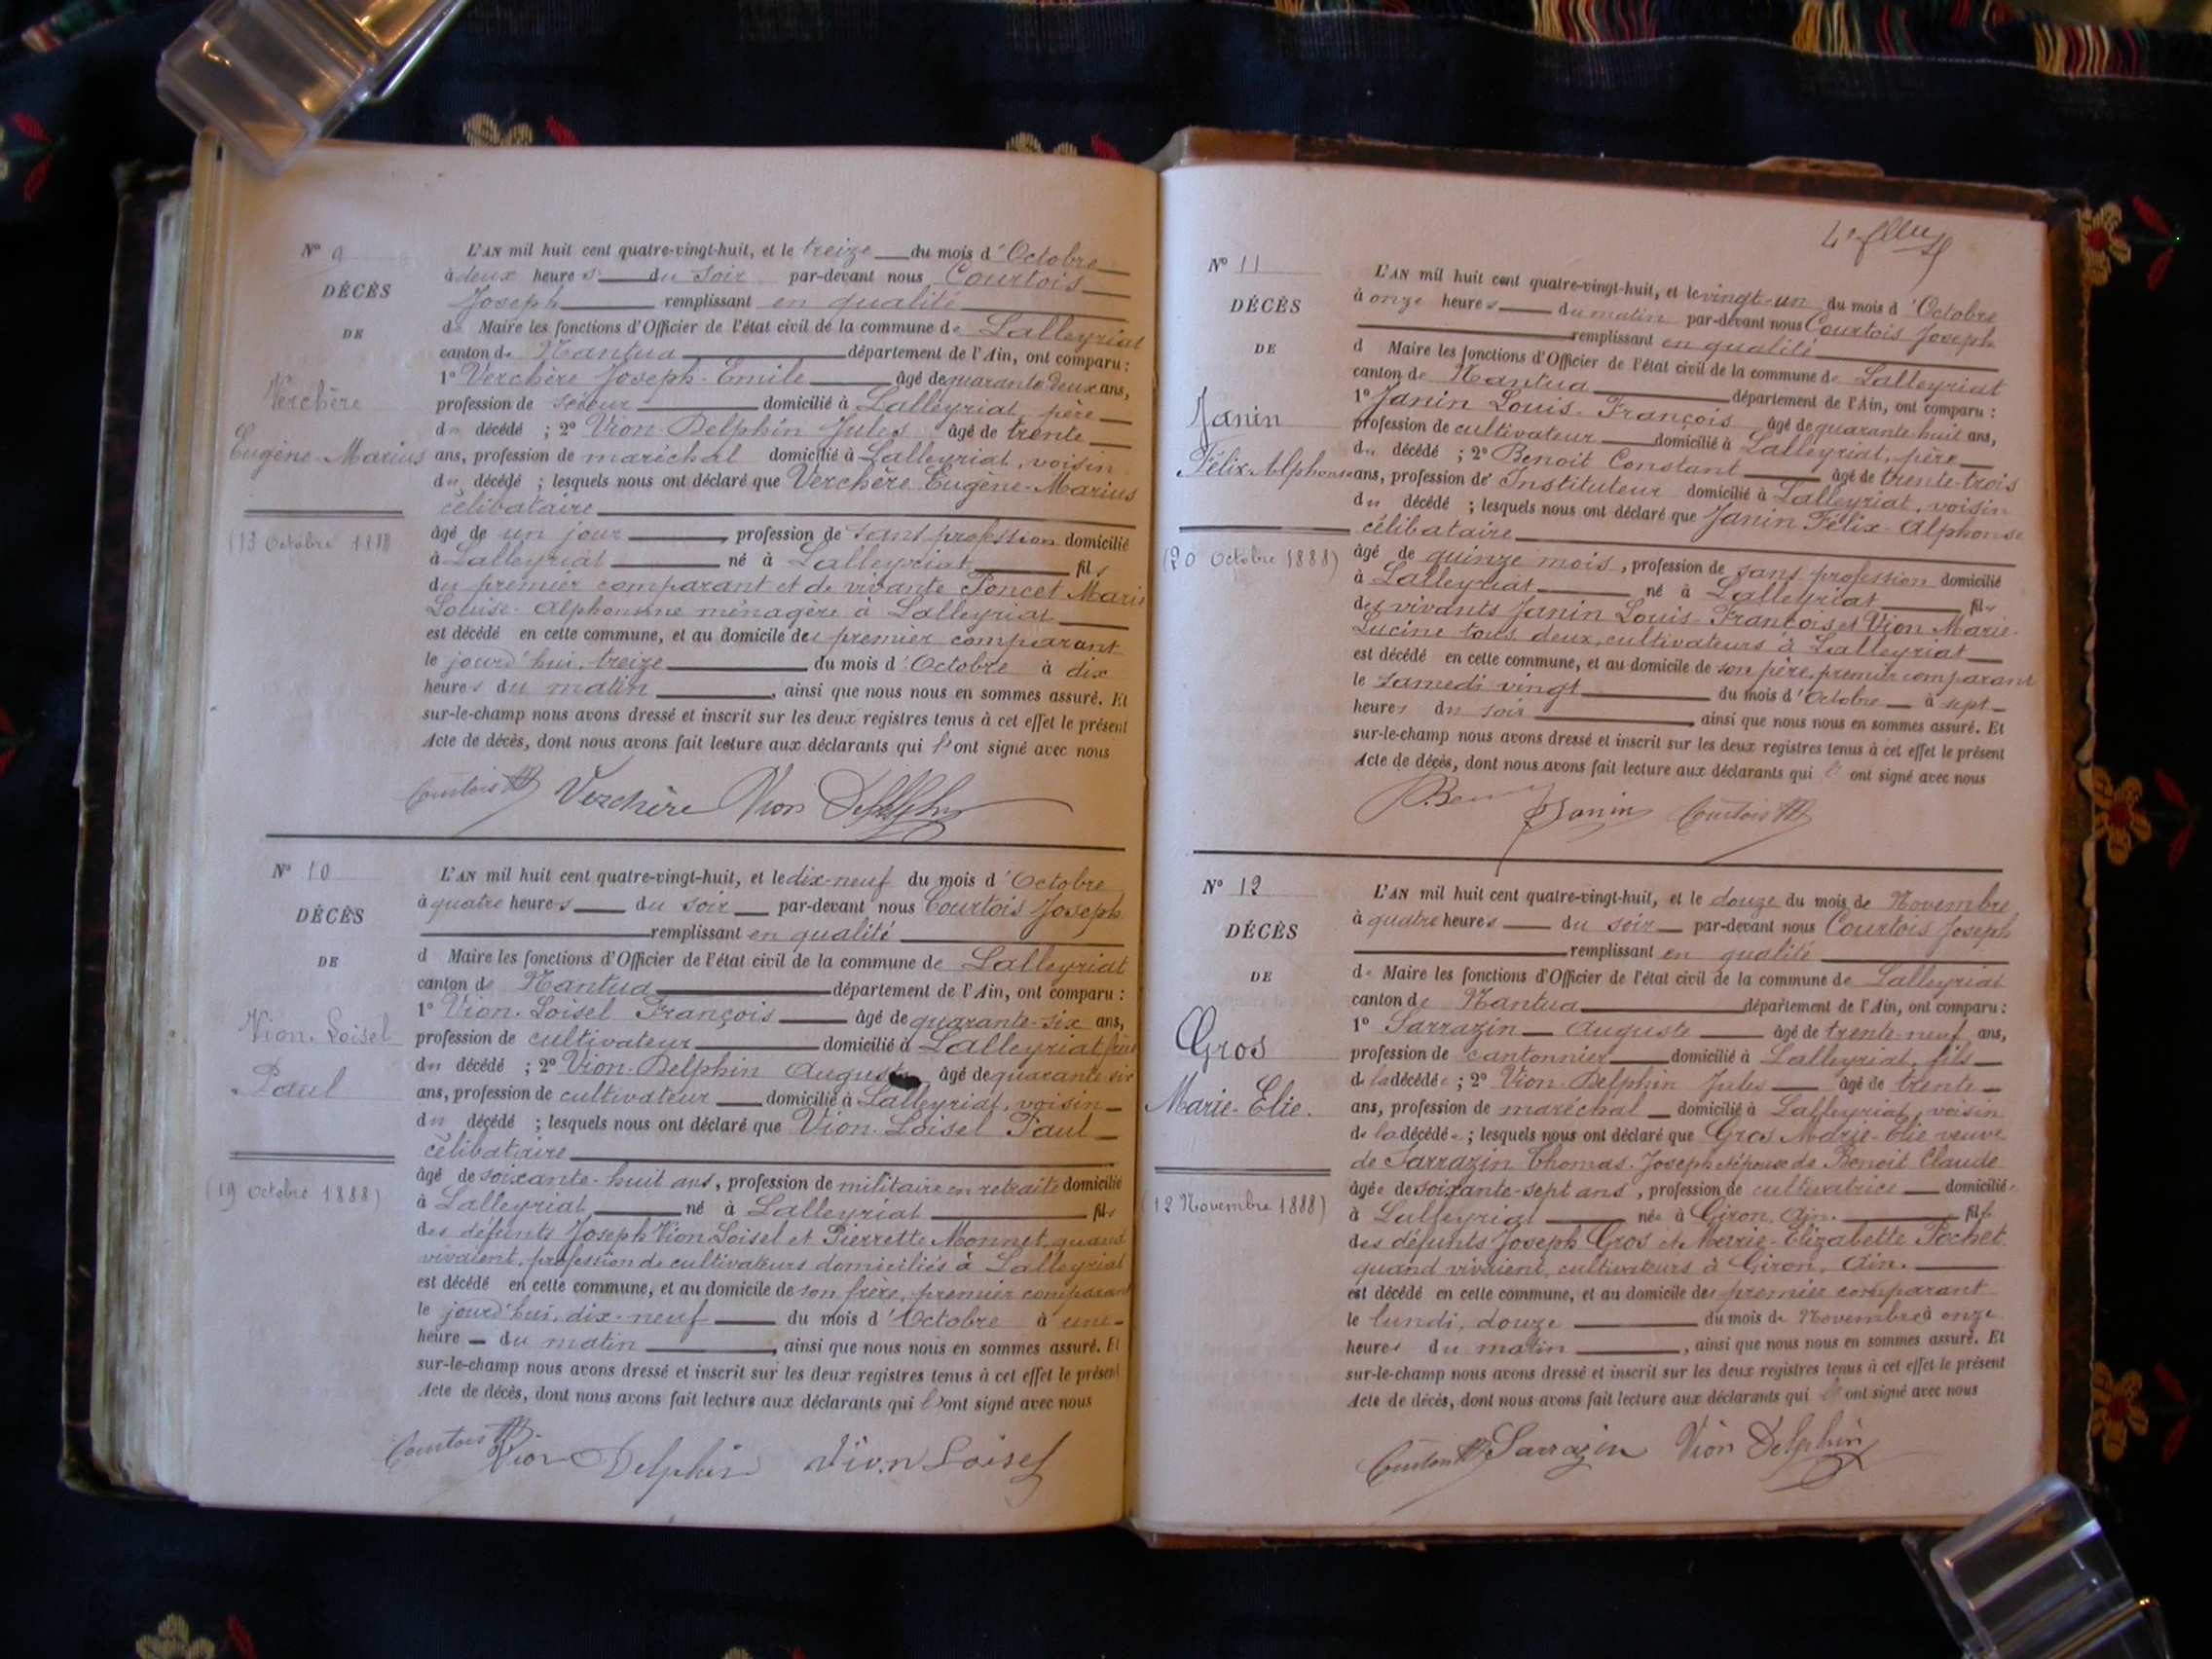 N° 9
DÉCÈS
DE
Verchère
Eugène-Marius
(13 Octobre 1888
L'AN mil huit cent quatre-vingt-huit, et le treize du mois d'Octobre
à deux heures du soir par-devant nous Courtois
Joseph remplissant en qualité
de Maire les fonctions d'Officier de l'état civil de la commune de Lalleyriat
canton de Nantua département de l'Ain, ont comparu :
1° Verchère Joseph-Emile âgé de quarante deux ans,
profession de scieur domicilié à Lalleyriat, père
du décédé ; 2° Vion-Delphin Jules âgé de trente
ans, profession de maréchal domicilié à Lalleyriat, voisin
du décédé ; lesquels nous ont déclaré que Verchère Eugène-Marius
célibataire
âgé de un jour, profession de sans profession domicilié
à Lalleyriat né à Lalleyriat fils
du premier comparant et de vivante Poncet Marie
Louise-Alphonsine ménagère à Lalleyriat
est décédé en cette commune, et au domicile des premier comparant
le jourd'hui, treize du mois d'Octobre à dix
heures du matin, ainsi que nous nous en sommes assuré. Et
sur-le-champ nous avons dressé et inscrit sur les deux registres tenus à cet effet le présent
Acte de décès, dont nous avons fait lecture aux déclarants qui l'ont signé avec nous
Courtois Verchère Vion Delphin
N° 10
DÉCÈS
DE
Vion-Loisel
Paul
(19 Octobre 1888)
L'AN mil huit cent quatre-vingt-huit, et le dix-neuf du mois d'Octobre
à quatre heures du soir par-devant nous Courtois Joseph
remplissant en qualité
d Maire les fonctions d'Officier de l'état civil de la commune de Lalleyriat
canton de Nantua département de l'Ain, ont comparu :
1° Vion-Loisel François âgé de quarante-six ans,
profession de cultivateur domicilié à Lalleyriat, frère
du décédé ; 2° Vion-Delphin Auguste âgé de quarante six
ans, profession de cultivateur domicilié à Lalleyriat, voisin
du décédé ; lesquels nous ont déclaré que Vion-Loisel Paul
célibataire
âgé de soixante-huit ans, profession de militaire en retraite domicilié
à Lalleyriat, né à Lalleyriat fils
des défunts Joseph Vion-Loisel et Pierrette Monnet, quand
vivaient, profession de cultivateurs domiciliés à Lalleyriat
est décédé en cette commune, et au domicile de son frère, premier comparant
le jourd'hui, dix-neuf du mois d'Octobre à une
heure du matin, ainsi que nous nous en sommes assuré. Et
sur-le-champ nous avons dressé et inscrit sur les deux registres tenus à cet effet le présent
Acte de décès, dont nous avons fait lecture aux déclarants qui l'ont signé avec nous
Courtois Vion Delphin Vion Loisel
N° 11
DÉCÈS
DE
Janin
Félix-Alphonse
(20 Octobre 1888)
L'AN mil huit cent quatre-vingt-huit, et le vingt-un du mois d'Octobre
à onze heures du matin par-devant nous Courtois Joseph
remplissant en qualité
d Maire les fonctions d'Officier de l'état civil de la commune de Lalleyriat
canton de Nantua département de l'Ain, ont comparu :
1° Janin Louis-François âgé de quarante huit ans,
profession de cultivateur domicilié à Lalleyriat, père
du décédé ; 2° Benoit Constant âgé de trente-trois
ans, profession de Instituteur domicilié à Lalleyriat, voisin
du décédé ; lesquels nous ont déclaré que Janin Félix-Alphonse
célibataire
âgé de quinze mois, profession de sans profession domicilié
à Lalleyriat né à Lalleyriat fils
des vivants Janin Louis-François et Vion Marie-
Lucine tous deux, cultivateurs à Lalleyriat
est décédé en cette commune, et au domicile de son père, premier comparant
le samedi vingt du mois d'Octobre à sept
heures du soir, ainsi que nous nous en sommes assuré. Et
sur-le-champ nous avons dressé et inscrit sur les deux registres tenus à cet effet le présent
Acte de décès, dont nous avons fait lecture aux déclarants qui l' ont signé avec nous
Janin Courtois
N° 12
DÉCÈS
DE
Gros
Marie-Elie.
(12 Novembre 1888)
L'AN mil huit cent quatre-vingt-huit, et le douze du mois de Novembre
à quatre heures du soir par-devant nous Courtois Joseph
remplissant en qualité
de Maire les fonctions d'Officier de l'état civil de la commune de Lalleyriat
canton de Nantua département de l'Ain, ont comparu :
1° Sarrazin Auguste âgé de trente-neuf ans,
profession de cantonnier domicilié à Lalleyriat, fils
de la décédée ; 2° Vion-Delphin Jules âgé de trente
ans, profession de maréchal domicilié à Lalleyriat, voisin
de la décédée ; lesquels nous ont déclaré que Gros Marie-Elie veuve
de Sarrazin Thomas-Joseph et épouse de Benoit Claude
âgée de soixante-sept ans, profession de cultivatrice domiciliée
à Lalleyriat née à Giron, Ain. fille
des défunts Joseph Gros et Marie-Elizabette Pochet
quand vivaient, cultivateurs à Giron, Ain.
est décédé en cette commune, et au domicile des premier comparant
le lundi, douze du mois de Novembre à onze
heures du matin, ainsi que nous nous en sommes assuré. Et
sur-le-champ nous avons dressé et inscrit sur les deux registres tenus à cet effet le présent
Acte de décès, dont nous avons fait lecture aux déclarants qui l' ont signé avec nous
Courtois Sarrazin Vion Delphin